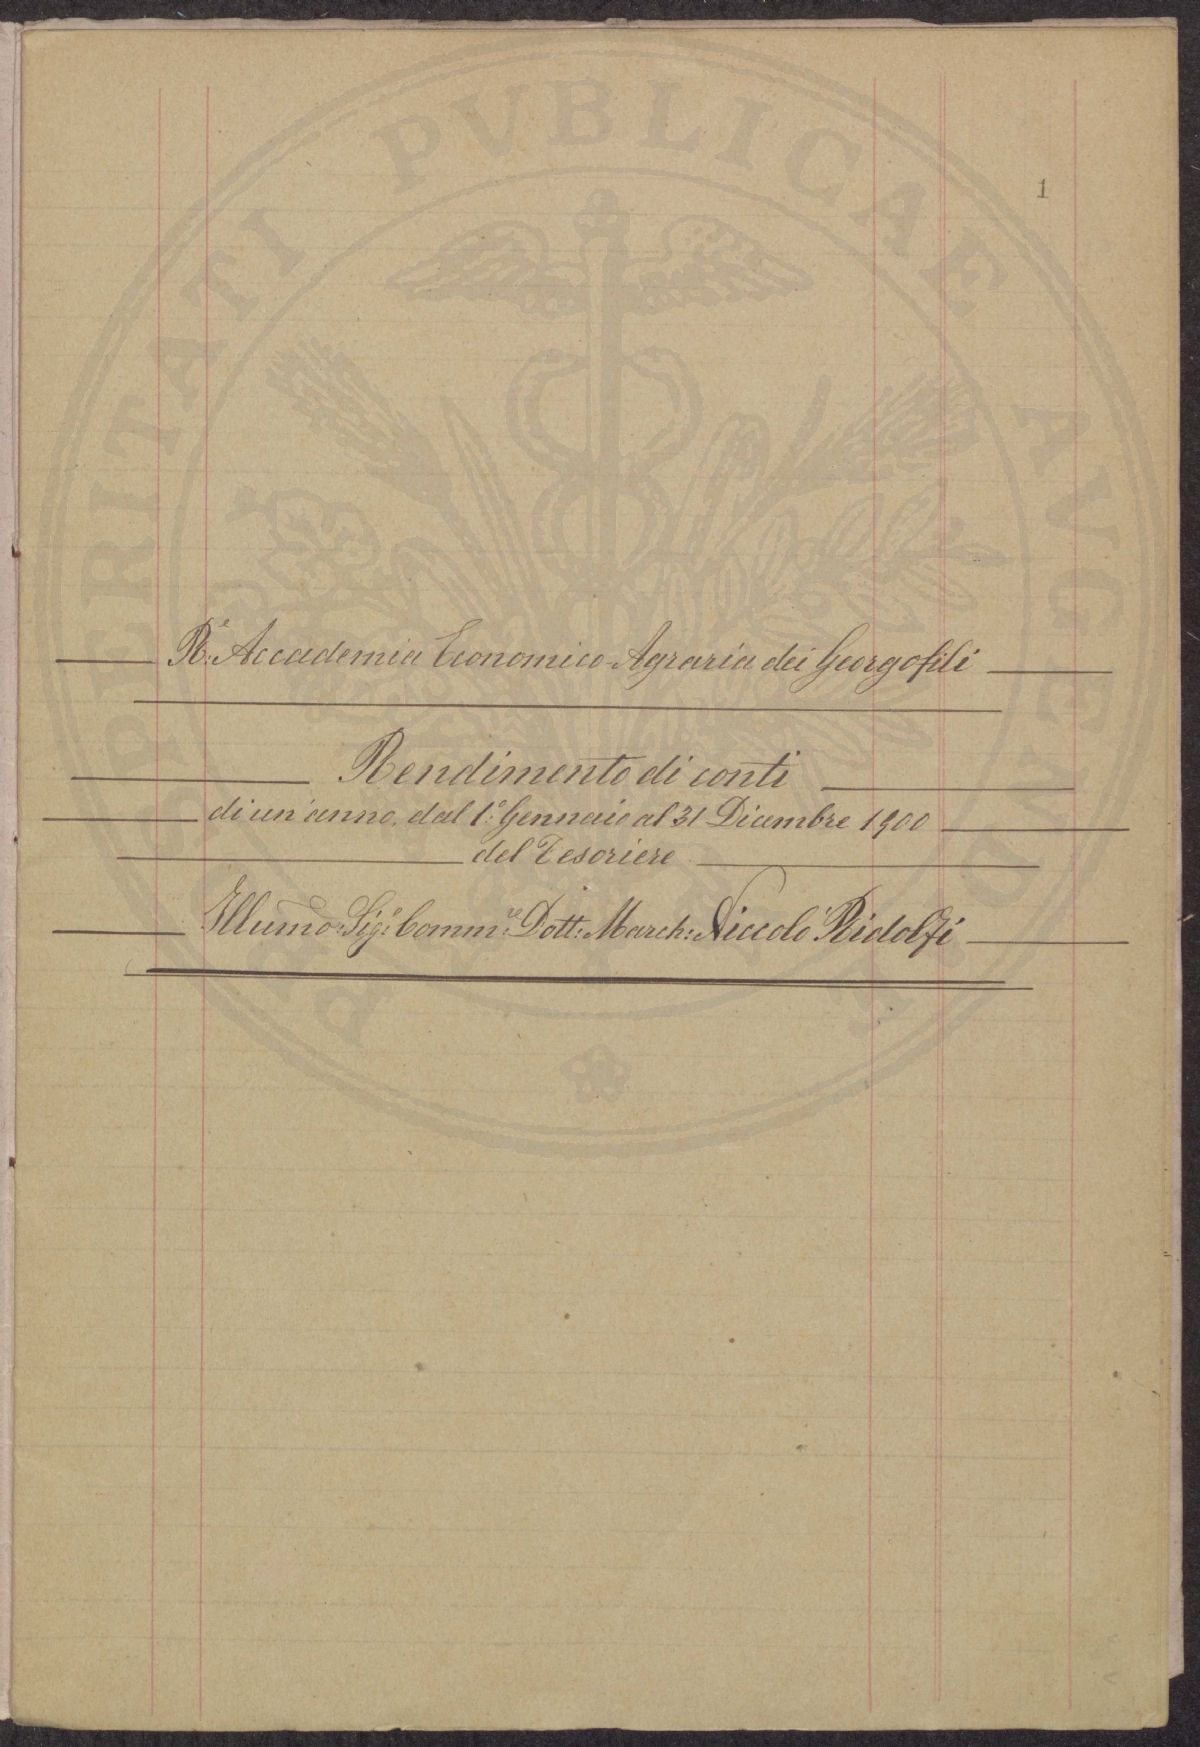 PROSPERITATI PVBLICAE AVGENDAE
1
R.ª Accademia Economico-Agraria dei Georgofili
Rendimento di conti
di un'anno, dal 1.º Gennaio al 31 Dicembre 1900
del Tesoriere
Illumo: Sig.r Comm.re Dott: March: Niccolò Ridolfi